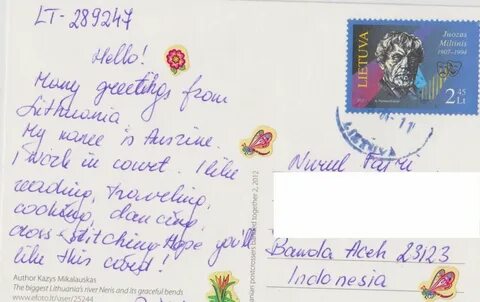 LT-289247
Hello!
Many greetings from
Lithuania
My name is Ausrine.
I work in court. I like
reading, traveling,
cooking, dancing,
cross stitching. Hope you'll
like this card!
Author Kazys Mikalauskas
The biggest Lithuania's river Neris and its graceful bends
www.efoto.lt/user/25244
postcrossers banded together 2, 2012
LIETUVA
Juozas
Miltinis
1907-1994
2 45
Lt
LIETUV
Nurul Fajri
Banda Aceh 23123
Indonesia